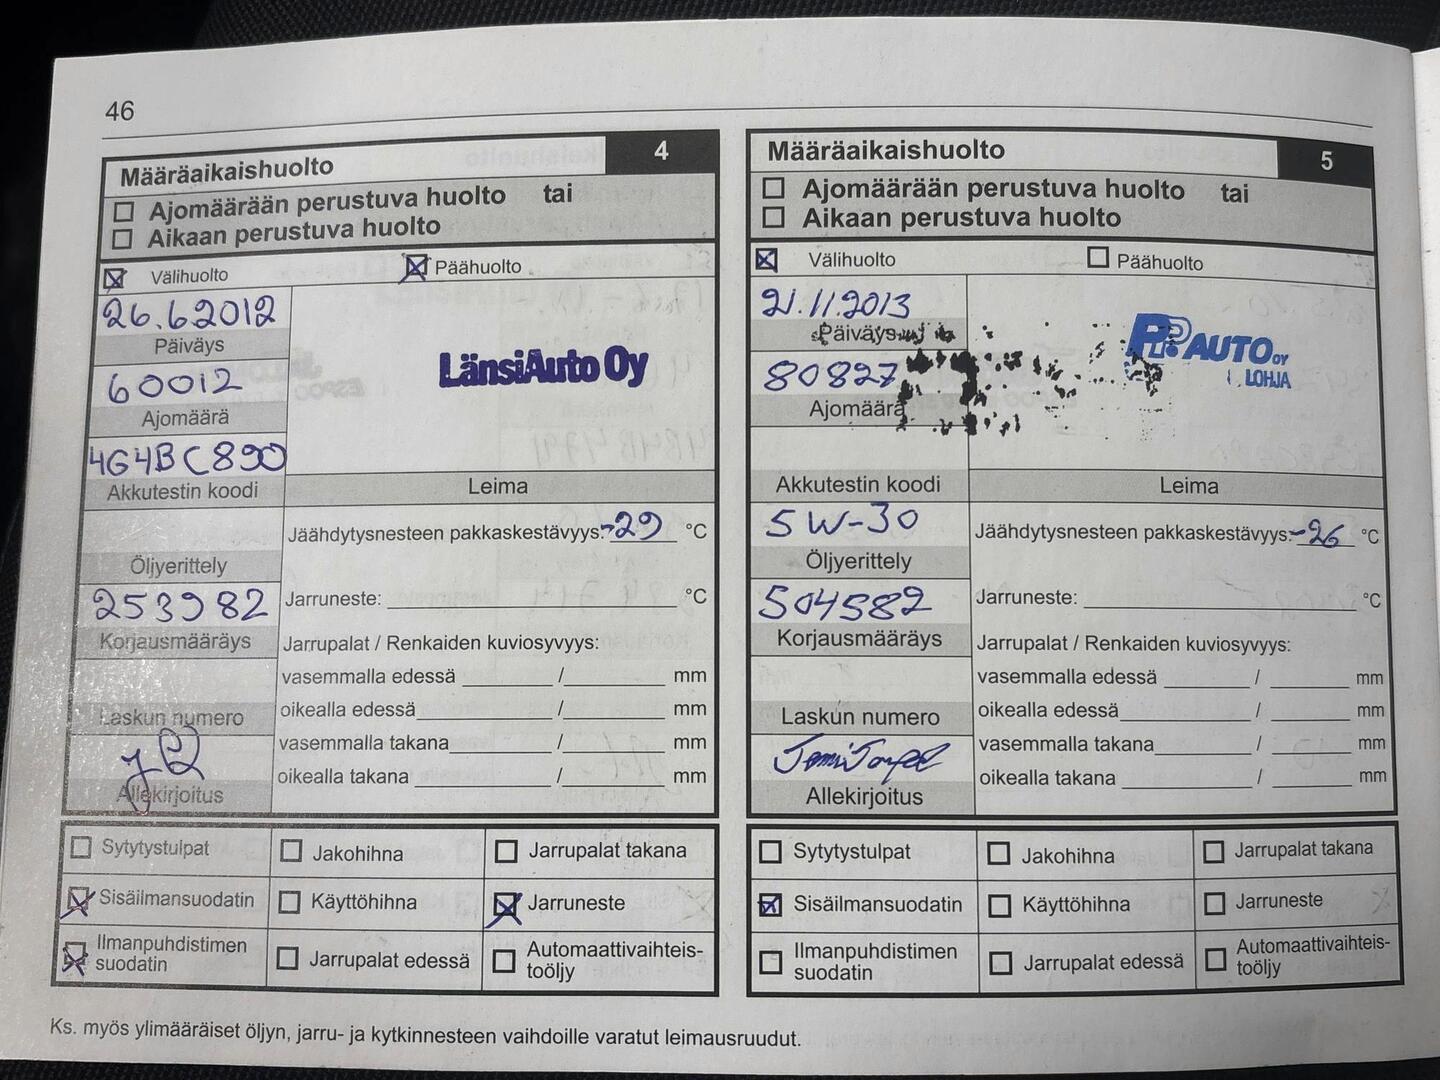 46
Määräaikaishuolto 4
Ajomäärään perustuva huolto tai
Aikaan perustuva huolto
Välihuolto Päähuolto
26.6.2012
Päiväys
60012
Ajomäärä
4G4BC890
Akkutestin koodi
LänsiAuto Oy
Leima
Öljyerittely
253982
Korjausmääräys
Laskun numero
Allekirjoitus
Jäähdytysnesteen pakkaskestävyys: -29 °C
Jarruneste: °C
Jarrupalat / Renkaiden kuviosyvyys:
vasemmalla edessä / mm
oikealla edessä / mm
vasemmalla takana / mm
oikealla takana / mm
Sytytystulpat Jakohihna Jarrupalat takana
Sisäilmansuodatin Käyttöhihna Jarruneste
Ilmanpuhdistimen suodatin Jarrupalat edessä Automaattivaihteis-
toöljy
Määräaikaishuolto 5
Ajomäärään perustuva huolto tai
Aikaan perustuva huolto
Välihuolto Päähuolto
21.11.2013
Päiväys
80827
Ajomäärä
Akkutestin koodi
PP AUTO OY
LOHJA
Leima
5W-30
Öljyerittely
504582
Korjausmääräys
Laskun numero
Allekirjoitus
Jäähdytysnesteen pakkaskestävyys: -26 °C
Jarruneste: °C
Jarrupalat / Renkaiden kuviosyvyys:
vasemmalla edessä / mm
oikealla edessä / mm
vasemmalla takana / mm
oikealla takana / mm
Sytytystulpat Jakohihna Jarrupalat takana
Sisäilmansuodatin Käyttöhihna Jarruneste
Ilmanpuhdistimen suodatin Jarrupalat edessä Automaattivaihteis-
toöljy
Ks. myös ylimääräiset öljyn, jarru- ja kytkinnesteen vaihdoille varatut leimausruudut.